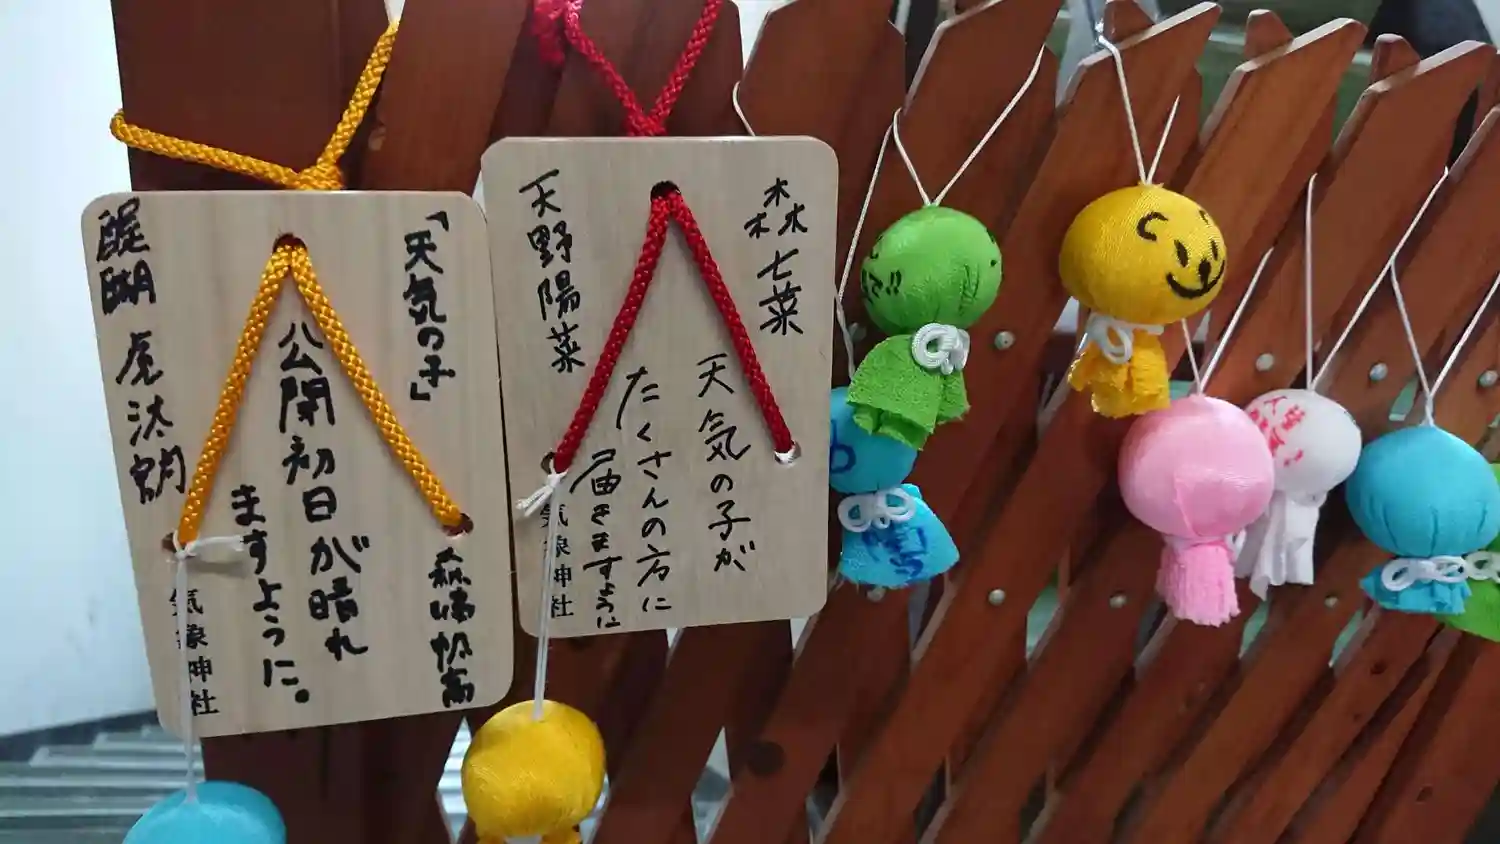 「天気の子」
公開初日が晴れ
ますように。
醍醐 虎汰朗
森嶋帆高
気象神社
森七菜
天気の子が
たくさんの方に
届きますように
天野陽菜
気象神社